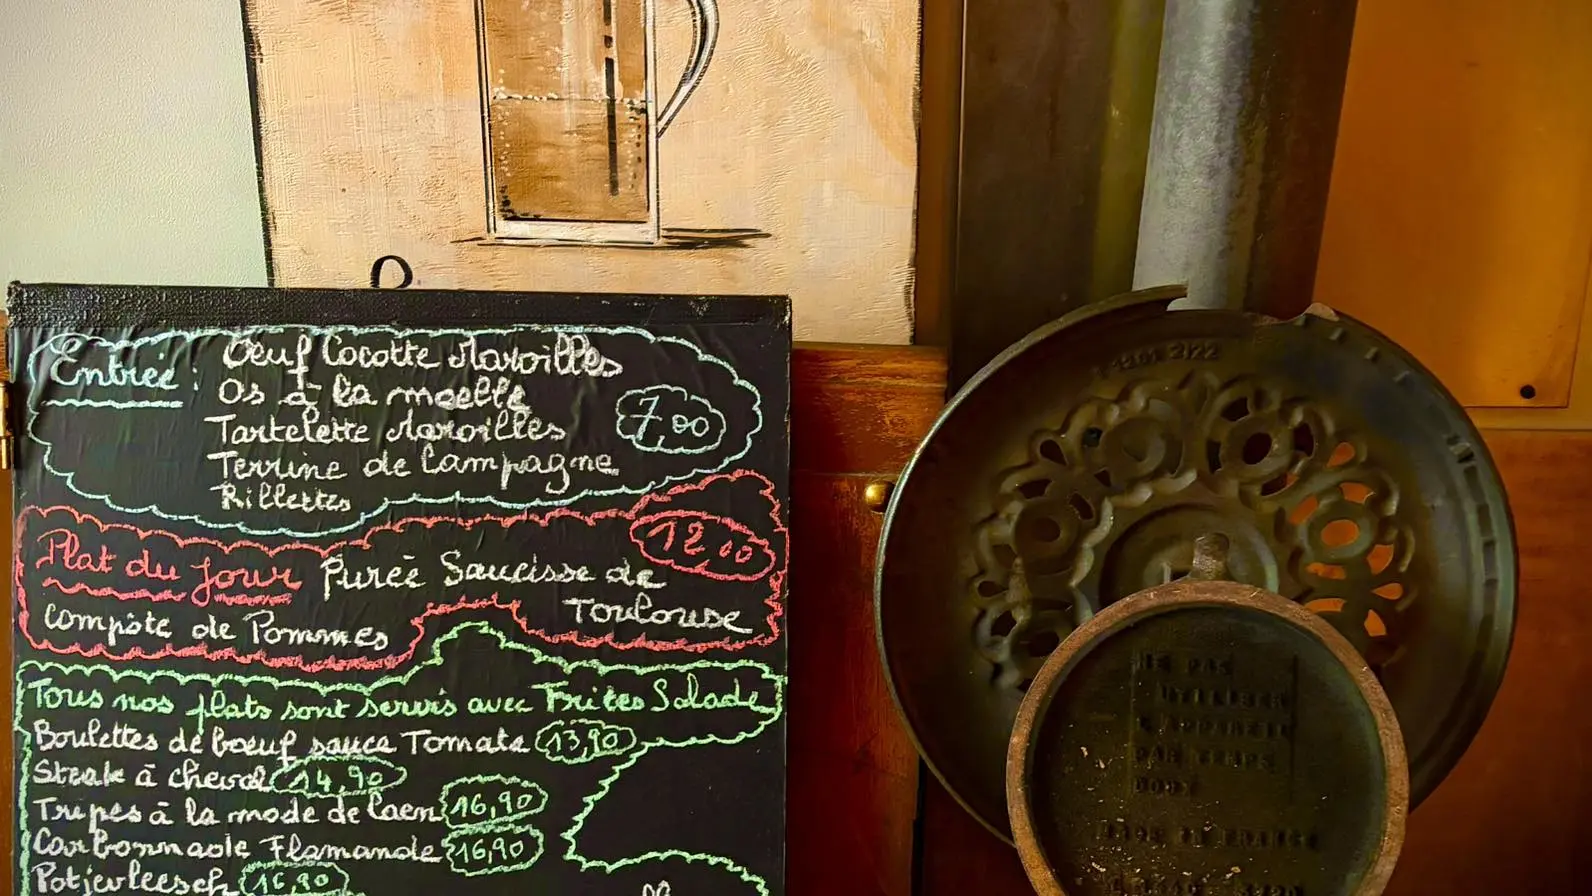 Entrée : Oeuf Cocotte Maroilles
Os à la moelle
7,00
Tartelette Maroilles
Terrine de Campagne
Rillettes
12 00
Plat du Jour Purée Saucisse de
Toulouse
Compôte de Pommes
Tous nos plats sont servis avec Frites Salade
Boulettes de boeuf sauce Tomate 13,90
Steak à cheval 14,90
Tripes à la mode de Caen 16,90
Carbonnade Flamande 16,90
Potjevleesch 16,90
NE PAS
UTILISER
L'APPAREIL
PAR TEMPS
DOUX
MADE IN FRANCE